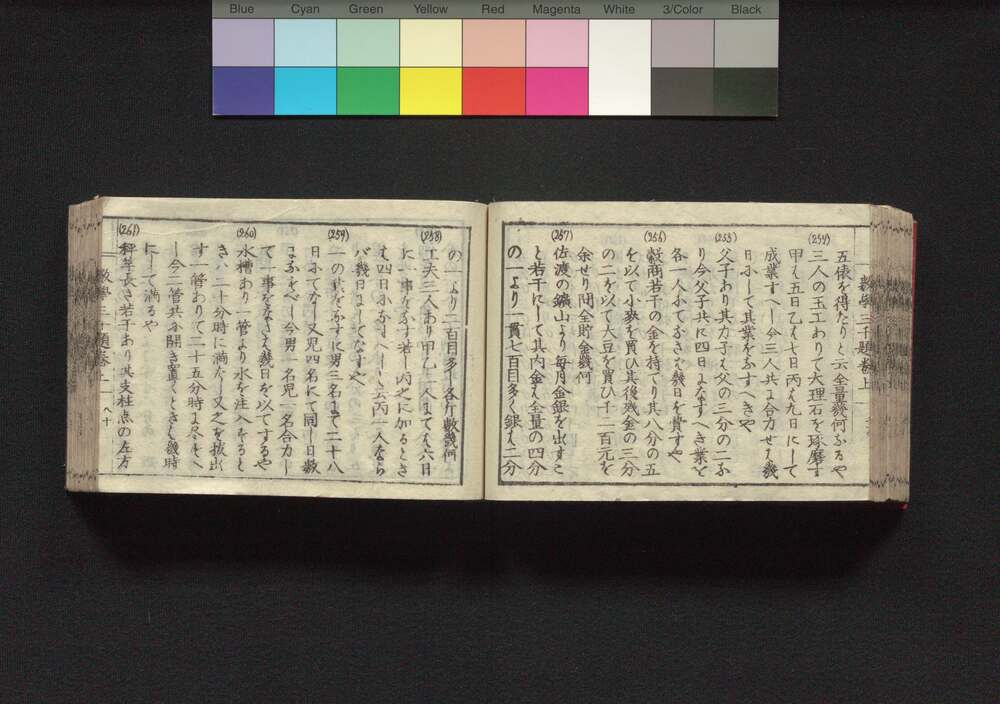 Blue Cyan Green Yellow Red Magenta White 3/Color Black
數學三千題卷上
五俵を得たりと云全量幾何なるや
(254)
三人の玉工ありて大理石を琢磨す
甲は五日乙は七日丙は九日にして
成業すへし今三人共に合力せは幾
日にして其業をなすへきや
(255)
父子あり其力子は父の三分の二な
り今父子共に四日になすへき業を
各一人にてなさは幾日を費すや
(256)
穀商若干の金を持てり其八分の五
を以て小麥を買ひ其後残金の三分
の二を以て大豆を買ひ十二百元を
余せり問全貯金幾何
(257)
佐渡の鑛山より毎月金銀を出すこ
と若干にして其内金は全量の四分
の一より一貫七百目多く銀は二分
の一より二百目多し各斤數幾何
(258)
工夫三人あり甲乙二人にては六日
に一事をなす若し丙之に加るとき
は四日になすへしと云丙一人なら
バ幾日にしてなすや
(259)
一の業をなすに男三名にて二十八
日にてなし又児四名にて同し日數
になすべし今男一名児一名合力し
て一事をなさは幾日を以てするや
(260)
水槽あり一管より水を注入すると
きハ二十分時に満たし又之を抜出
す一管ありて二十五分時に尽すへ
し今二管共に開き置くときは幾時
にして満るや
(261)
秤竿長さ若干あり其支柱点の左方
數學三千題卷上 八十